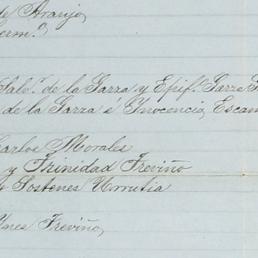 de Araujo,
erm.ᵒ
Salv.ʳ de la Garza y Epif.º Garza
de la Garza é Ynocencia Escam
Carlos Morales
y Trinidad Treviño
Sostenes Urrutia
Ynes Treviño,